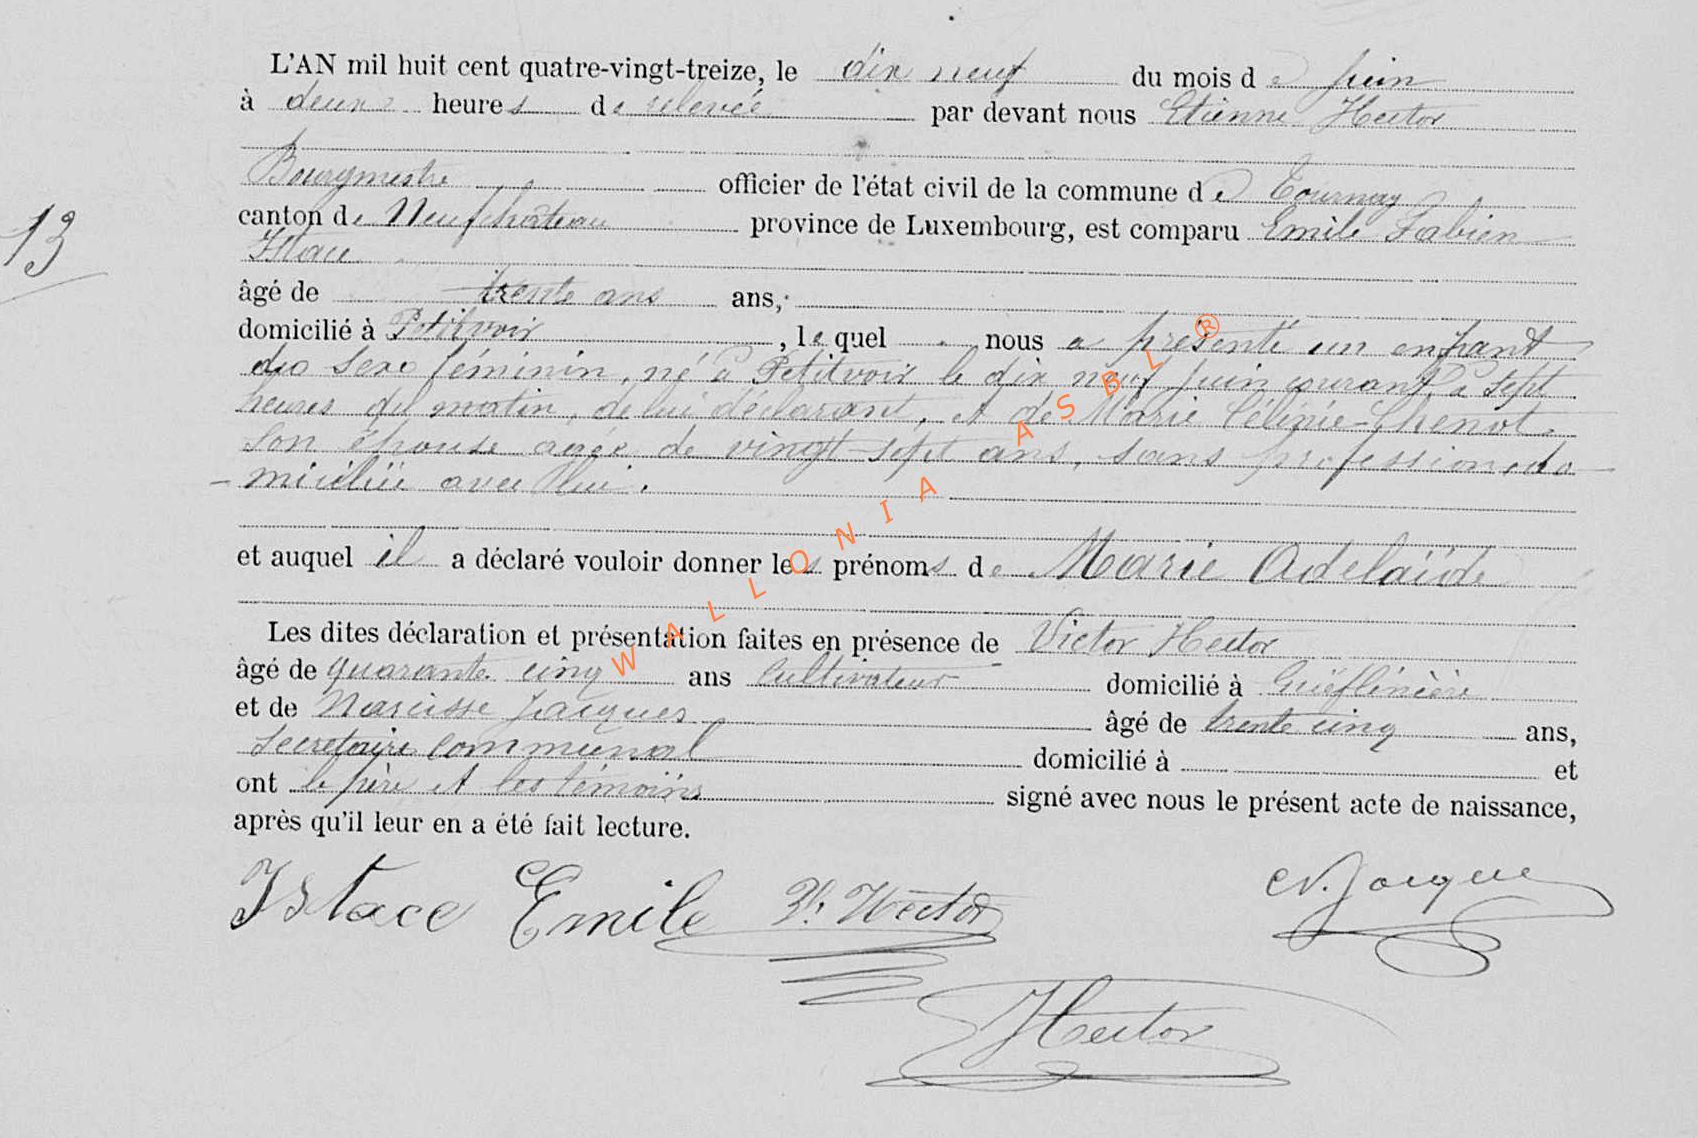 L'AN mil huit cent quatre-vingt-treize, le dix neuf du mois de juin
à deux heures de relevée par devant nous Etienne Hector
Bourgmestre officier de l'état civil de la commune de Tournay
canton de Neufchâteau province de Luxembourg, est comparu Emile Fabien
13
Istace
âgé de trente ans ans,
domicilié à Petitvoir, lequel nous a présenté un enfant
du sexe féminin, né à Petitvoir le dix neuf juin courant, à sept
heures du matin, de lui déclarant, et de Marie Célinie Thenot
son épouse agée de vingt-sept ans, sans profession, do
-miciliée avec lui.
et auquel il a déclaré vouloir donner les prénoms de Marie Adelaïde
Les dites déclaration et présentation faites en présence de Victor Hector
âgé de quarante cinq ans cultivateur domicilié à
et de Narcisse Jacques âgé de trente cinq ans,
secrétaire communal domicilié à et
ont le père et les témoins signé avec nous le présent acte de naissance,
après qu'il leur en a été fait lecture.
Istace Emile V. Hector N. Jacques
Hector
WALLONIA ASBL ®